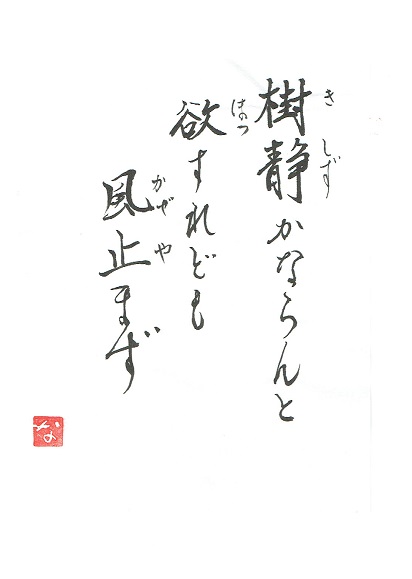 樹静かならんと
き しず
欲すれども
ほつ
風止まず
かぜ や
な